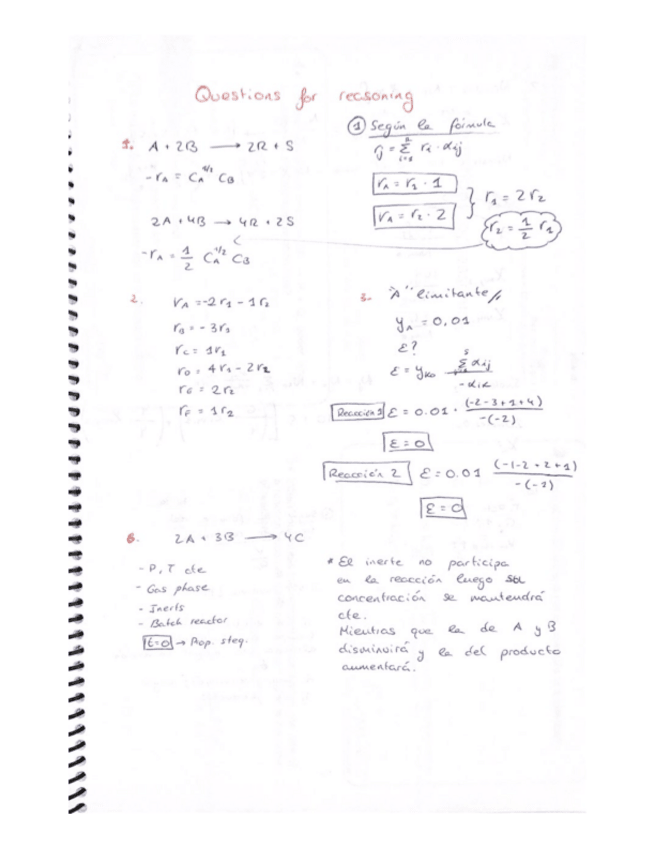 Questions for reasoning
1. A + 2B ⟶ 2R + S
-rA = CA^1/2 CB
2A + 4B → 4R + 2S
-rA = 1/2 CA^1/2 CB
① Según la fórmula
rj = Σ ri · αij
rA = r1 · 1
rA = r2 · 2
r1 = 2r2
r2 = 1/2 r1
2. rA = -2r1 - 1r2
rB = -3r1
rC = 1r1
rD = 4r1 - 2r2
rE = 2r2
rF = 1r2
3. "A" limitante
yA = 0,01
ε?
ε = yKo Σ αij / -αik
Reacción 1 ε = 0.01 · (-2-3+1+4) / -(-2)
ε = 0
Reacción 2 ε = 0.01 (-1-2+2+1) / -(-1)
ε = 0
6. 2A + 3B ⟶ 4C
- P, T cte
- Gas phase
- Inerts
- Batch reactor
t=0 → Prop. steq.
* El inerte no participa
en la reacción luego su
concentración se mantendrá
cte.
Mientras que la de A y B
disminuirá y la del producto
aumentará.